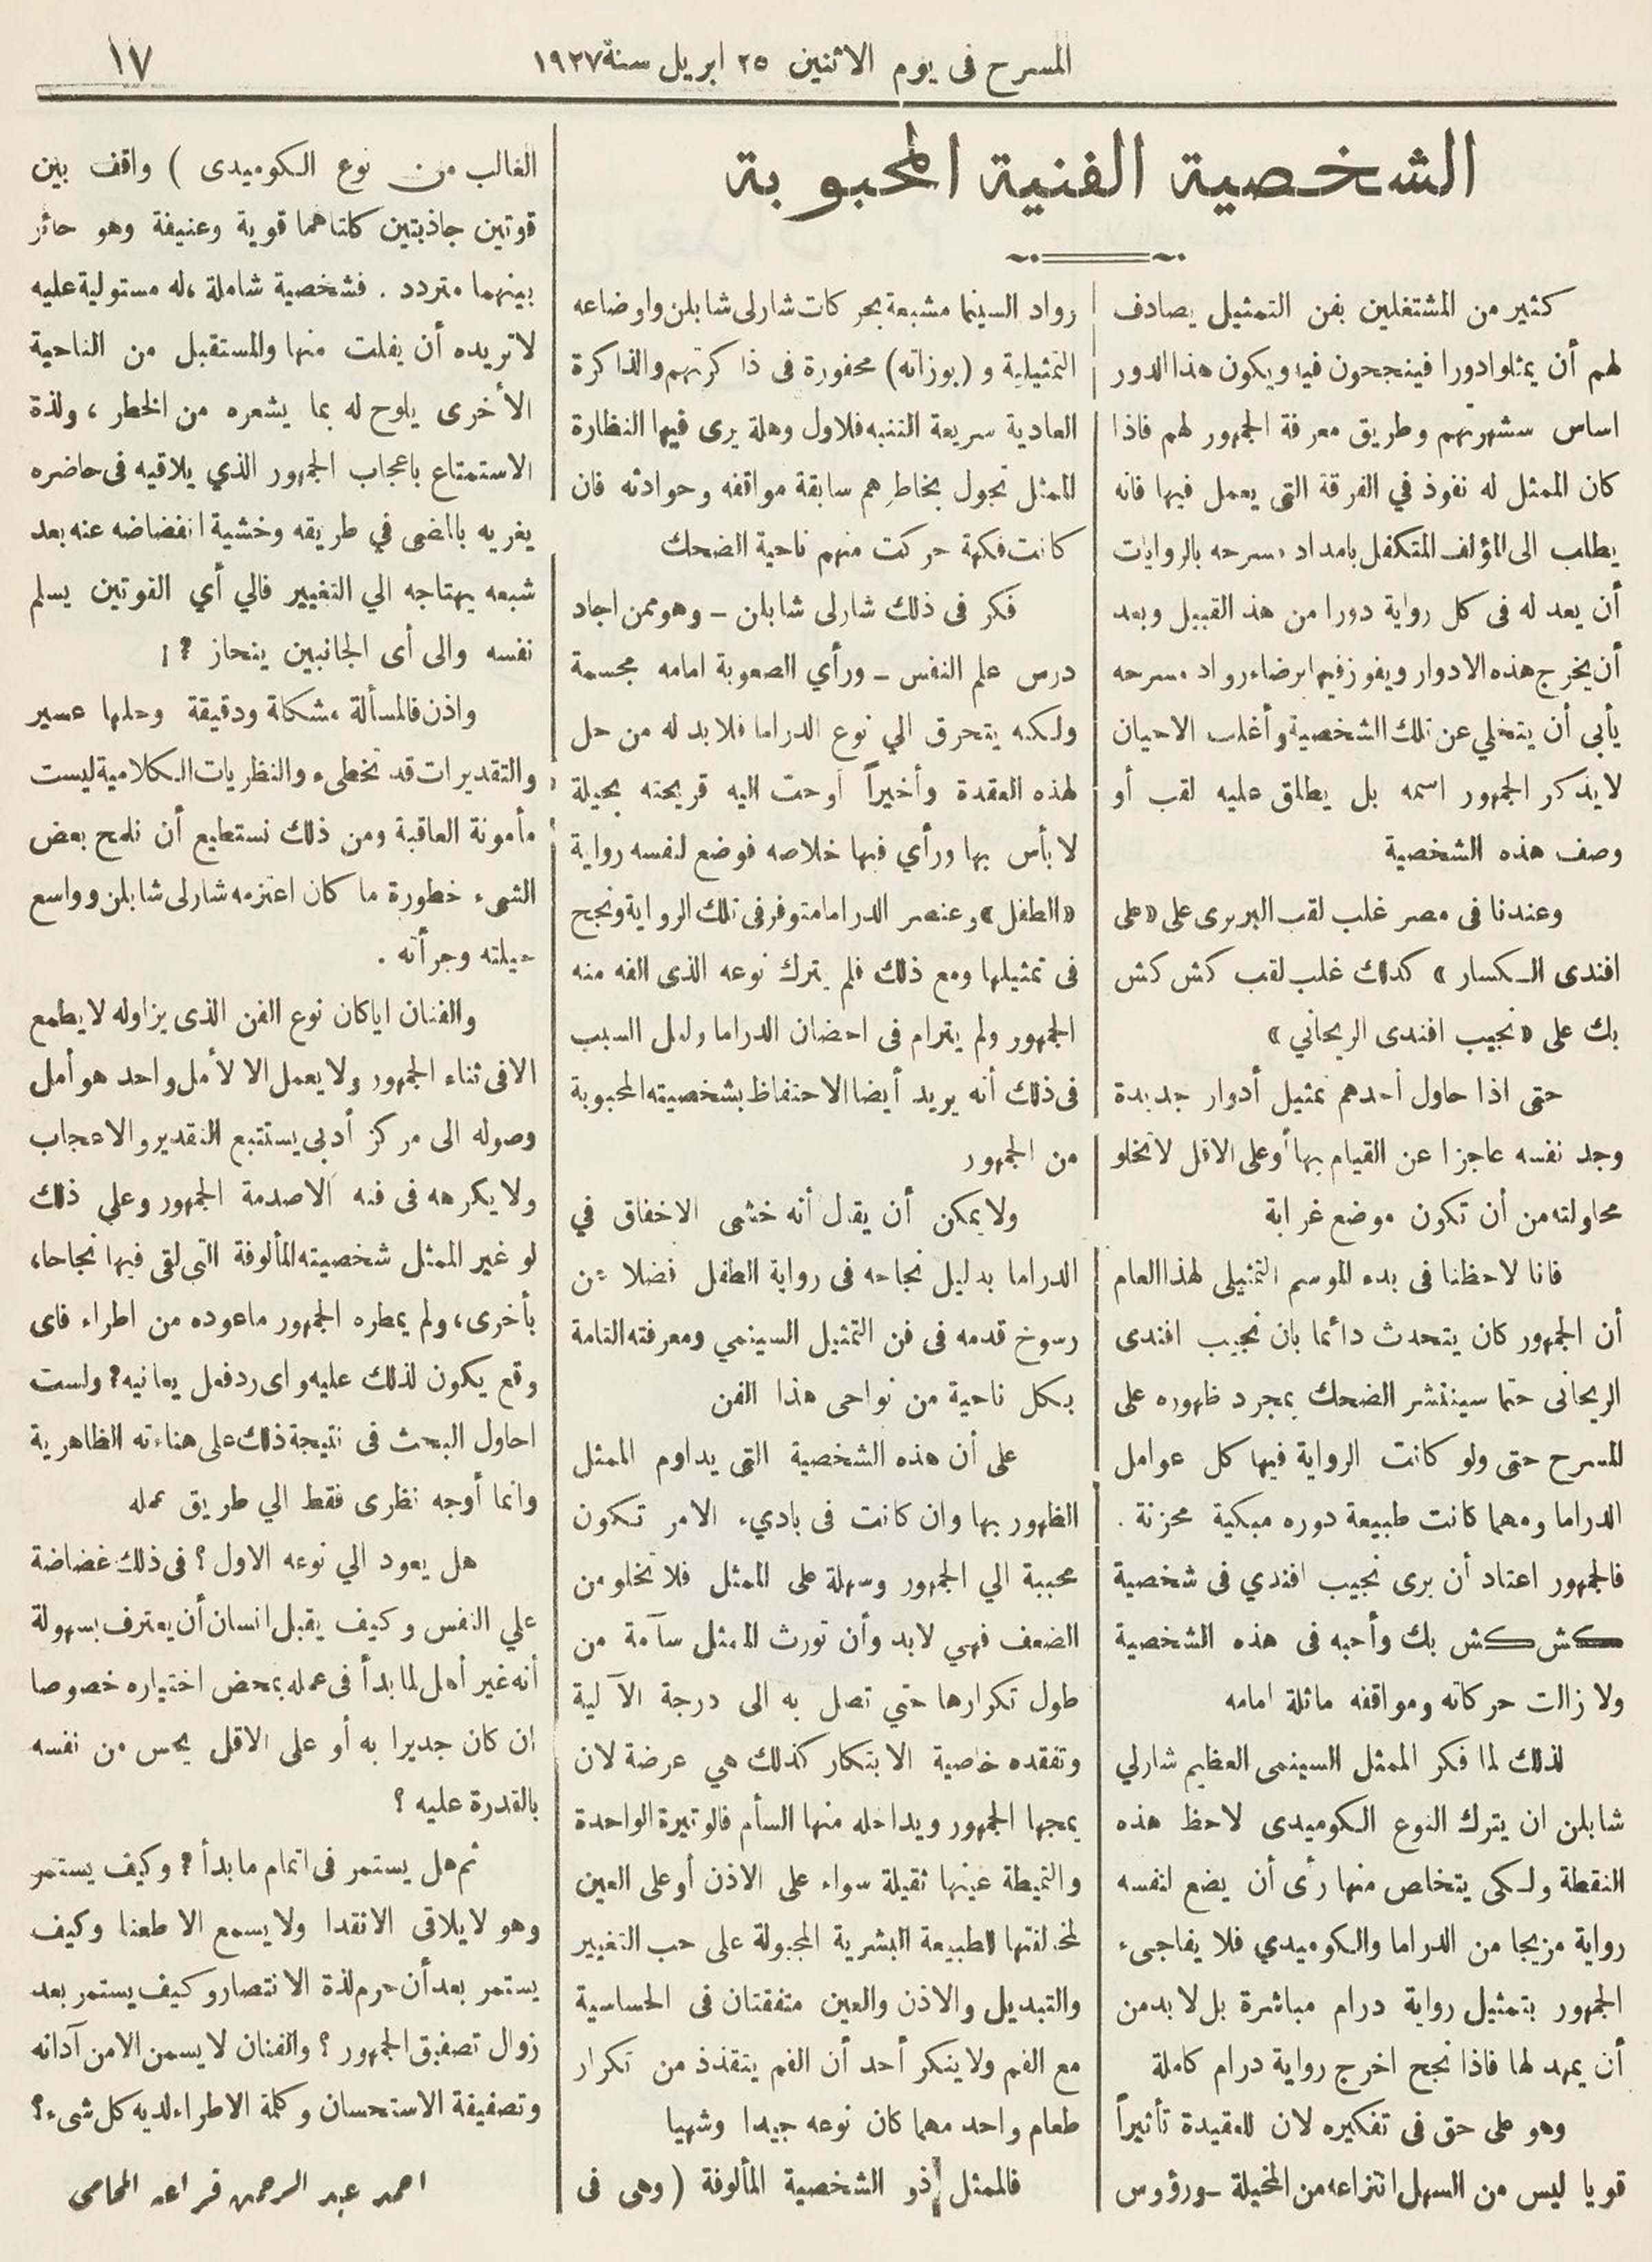 المسرح فى يوم الاثنين ٢٥ ابريل سنة ١٩٢٧
١٧
الشخصية الفنية المحبوبة
كثير من المشتغلين بفن التمثيل يصادف
لهم أن يمثلوا دورا فينجحون فيه ويكون هذا الدور
اساس سشهرتهم وطريق معرفة الجمهور لهم فاذا
كان الممثل له نفوذ في الفرقة التى يعمل فيها فانه
يطلب الى المؤلف المتكفل بامداد مسرحه بالروايات
أن يعد له فى كل رواية دورا من هذ القبيل وبعد
أن يخرج هذه الادوار ويفوز فيها برضاء رواد مسرحه
يأبى أن يتخلي عن تلك الشخصية وأغلب الاحيان
لا يذكر الجمهور اسمه بل يطلق عليه لقب أو
وصف هذه الشخصية
وعندنا فى مصر غلب لقب البربرى على «على
افندى الكسار» كذلك غلب لقب كش كش
بك على «نجيب افندى الريحاني»
حتى اذا حاول أحدهم تمثيل أدوار جديدة
وجد نفسه عاجزا عن القيام بها أو على الاقل لاتخلو
محاولته من أن تكون موضع غرابة
فانا لاحظنا فى بدء الموسم التمثيلى لهذا العام
أن الجمهور كان يتحدث دائما بان نجيب افندى
الريحانى حتما سينتشر الضحك بمجرد ظهوره على
المسرح حتى ولو كانت الرواية فيها كل عوامل
الدراما ومهما كانت طبيعة دوره مبكية محزنة .
فالجمهور اعتاد أن يرى نجيب افندي فى شخصية
كش كش بك وأحبه فى هذه الشخصية
ولا زالت حركاته ومواقفه ماثلة امامه
لذلك لما فكر الممثل السينمى العظيم شارلي
شابلن ان يترك النوع الكوميدى لاحظ هذه
النقطة ولكى يتخلص منها رأى أن يضع لنفسه
رواية مزيجا من الدراما والكوميدي فلا يفاجىء
الجمهور بتمثيل رواية درام مباشرة بل لا بد من
أن يمهد لها فاذا نجح اخرج رواية درام كاملة
وهو على حق فى تفكيره لان للعقيدة تأثيراً
قويا ليس من السهل انتزاعه من المخيلة ــ ورؤوس
رواد السينما مشبعة بحركات شارلى شابلن واوضاعه
التمثيلية و (بوزاته) محفورة فى ذاكرتهم والذاكرة
العادية سريعة التنبه فلاول وهلة يرى فيها النظارة
الممثل تجول بخاطرهم سابقة مواقفه وحوادثه فان
كانت فكهة حركت منهم ناحية الضحك
فكر فى ذلك شارلى شابلن ــ وهو ممن اجاد
درس علم النفس ــ ورأي الصعوبة امامه مجسمة
ولكنه يتحرق الي نوع الدراما فلا بد له من حل
لهذه العقدة وأخيراً أوحت اليه قريحته بحيلة
لا بأس بها ورأي فيها خلاصه فوضع لنفسه رواية
«الطفل» وعنصر الدراما متوفر فى تلك الرواية ونجح
فى تمثيلها ومع ذلك فلم يترك نوعه الذى الفه منه
الجمهور ولم يترام فى احضان الدراما ولعل السبب
فى ذلك أنه يريد أيضا الاحتفاظ بشخصيته المحبوبة
من الجمهور
ولا يمكن أن يقال أنه خشى الاخفاق في
الدراما بدليل نجاحه فى رواية الطفل فضلا عن
رسوخ قدمه فى فن التمثيل السينمي ومعرفته التامة
بكل ناحية من نواحى هذا الفن
على أن هذه الشخصية التى يداوم الممثل
الظهور بها وان كانت فى باديء الامر تكون
محببة الي الجمهور وسهلة على الممثل فلا تخلو من
الضعف فهي لابد وأن تورث الممثل سآمة من
طول تكرارها حتي تصل به الى درجة الآلية
وتفقده خاصية الابتكار كذلك هي عرضة لان
يمجها الجمهور ويداخله منها السأم فالوتيرة الواحدة
والنميطة عينها ثقيلة سواء على الاذن أو على العين
لمخالفتها الطبيعة البشرية المجبولة على حب التغيير
والتبديل والاذن والعين متفقتان فى الحساسية
مع الفم ولا ينكر أحد أن الفم يتقذذ من تكرار
طعام واحد مهما كان نوعه جيدا وشهيا
فالممثل ذو الشخصية المألوفة (وهى فى
الغالب من نوع الكوميدى) واقف بين
قوتين جاذبتين كلتاهما قوية وعنيفة وهو حائر
بينهما متردد . فشخصية شاملة له مستولية عليه
لا تريده أن يفلت منها والمستقبل من الناحية
الأخرى يلوح له بما يشعره من الخطر ، ولذة
الاستمتاع باعجاب الجمهور الذي يلاقيه فى حاضره
يغريه بالمضى في طريقه وخشية انفضاضه عنه بعد
شبعه يهتاجه الي التغيير فالي أي القوتين يسلم
نفسه والى أى الجانبين ينحاز ؟!
واذن فالمسألة مشكلة ودقيقة وحلها عسير
والتقديرات قد تخطىء والنظريات الكلامية ليست
مأمونة العاقبة ومن ذلك نستطيع أن نلمح بعض
الشىء خطورة ما كان اعتزمه شارلى شابلن وواسع
حيلته وجرأته .
والفنان ايا كان نوع الفن الذى يزاوله لا يطمع
الا فى ثناء الجمهور ولا يعمل الا لأمل واحد هو أمل
وصوله الى مركز أدبى يستتبع التقدير والاعجاب
ولا يكرهه فى فنه الا صدمة الجمهور وعلي ذلك
لو غير الممثل شخصيته المألوفة التى لقى فيها نجاحا،
بأخرى، ولم يمطره الجمهور ما عوده من اطراء فاى
وقع يكون لذلك عليه واى رد فعل يعانيه؟ ولست
احاول البحث فى نتيجة ذلك على هناءته الظاهرية
وانما أوجه نظرى فقط الي طريق عمله
هل يعود الي نوعه الاول ؟ فى ذلك غضاضة
علي النفس وكيف يقبل انسان أن يعترف بسهولة
أنه غير أهل لما بدأ فى عمله بمحض اختياره خصوصا
ان كان جديرا به أو على الاقل يحس من نفسه
بالقدرة عليه ؟
ثم هل يستمر فى اتمام ما بدأ ؟ وكيف يستمر
وهو لا يلاقى الا نقدا ولا يسمع الا طعنا وكيف
يستمر بعد أن حرم لذة الانتصار وكيف يستمر بعد
زوال تصفيق الجمهور ؟ والفنان لا يسمن الا من آدانه
وتصفيفة الاستحسان وكلمة الاطراء لديه كل شىء؟
احمد عبد الرحمن قراعه المحامى